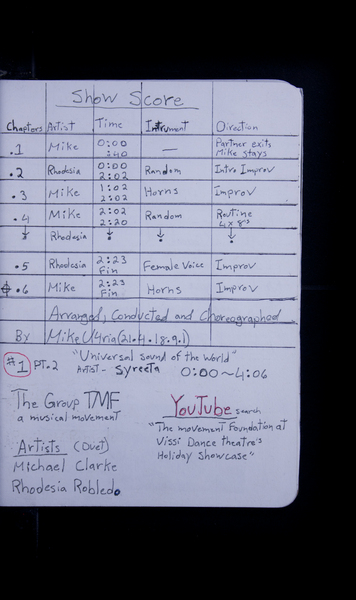 Show Score
Chapters Artist Time Intrument Direction
.1 Mike 0:00 :40 — Partner exits Mike stays
.2 Rhodesia 0:00 2:02 Random Intro Improv
.3 Mike 1:02 2:02 Horns Improv
.4 Mike 2:02 2:20 Random Routine 4x8's
↓ Rhodesia ↓ ↓ ↓
.5 Rhodesia 2:23 Fin Female Voice Improv
.6 Mike 2:23 Fin Horns Improv
Arranged, Conducted and Choreographed
By Mike
#1 PT.2 "Universal sound of the World"
Artist - Syreeta 0:00~4:06
The Group TMF
a musical movement
YouTube search
"The movement Foundation at
Vissi Dance theatre's
Holiday Showcase"
Artists (Duet)
Michael Clarke
Rhodesia Robledo